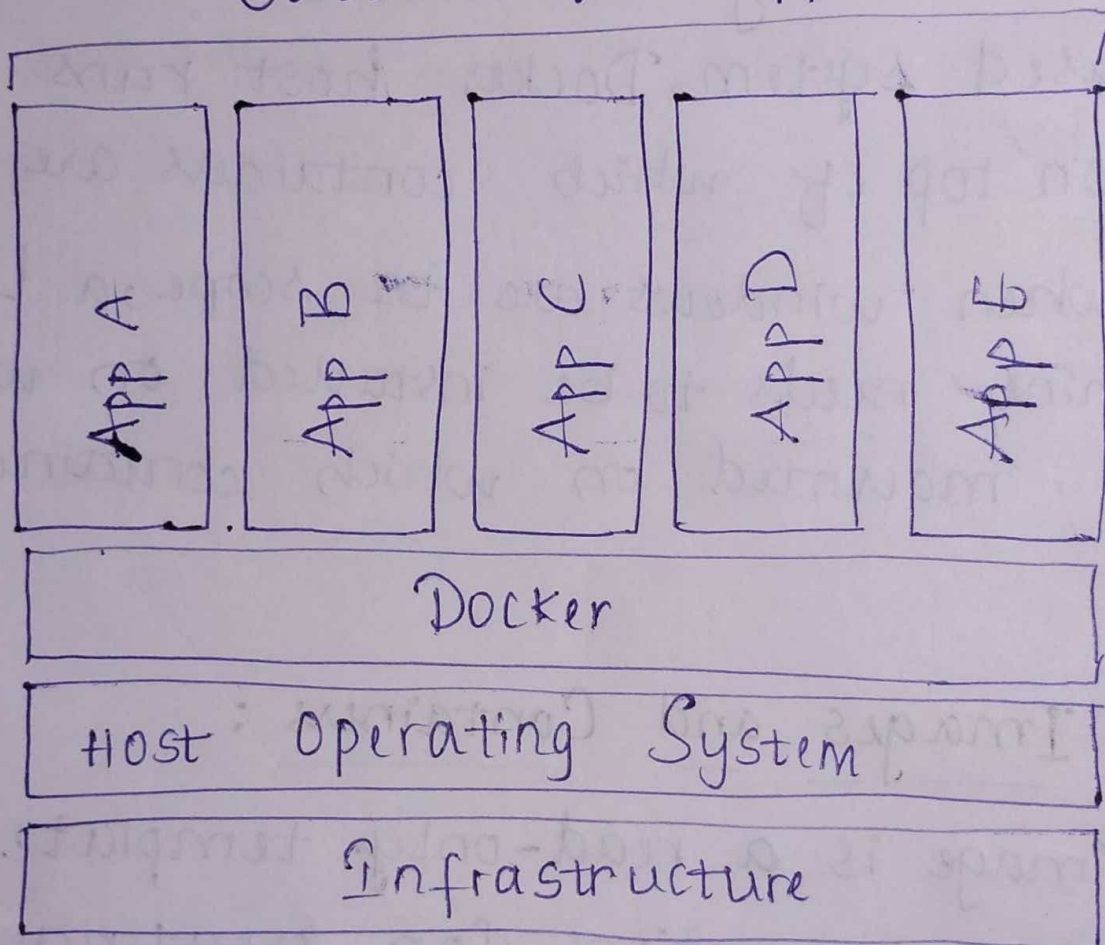 App A
App B
App C
App D
App E
Docker
Host Operating System
Infrastructure